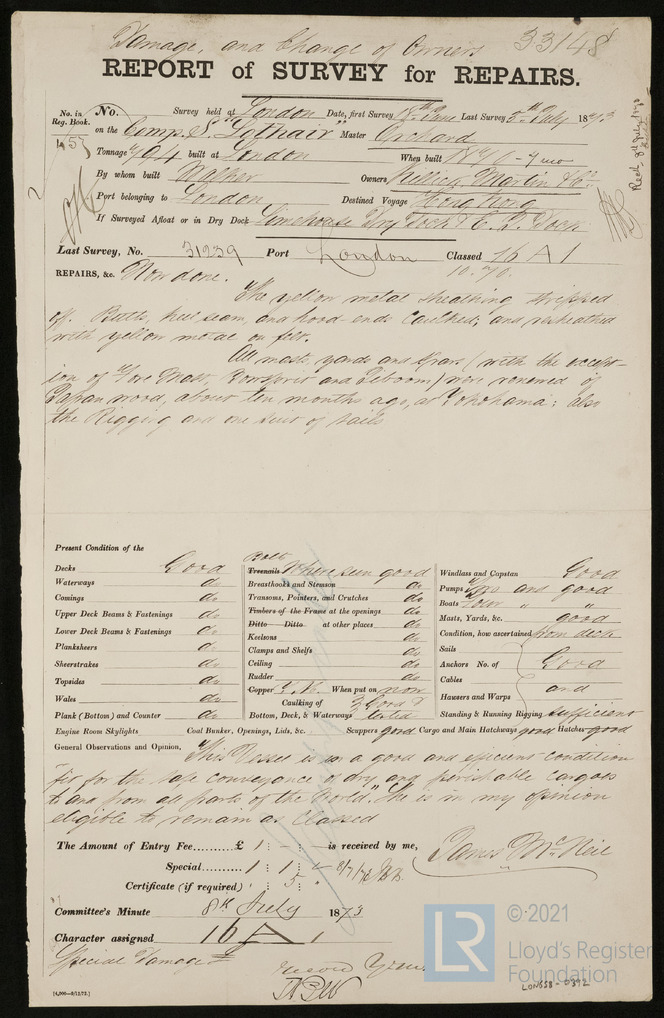 Damage, and Change of Owners 33148
REPORT of SURVEY for REPAIRS.
No. in Reg. Book. No. Survey held at London Date, first Survey 18th June Last Survey 5th July 1873
on the Comp. S. "Lothair" Master Orchard
Tonnage 794 built at London When built 1870 - 7 mo
By whom built Walker Owners Killick Martin & Co.
Port belonging to London Destined Voyage Hong Kong
If Surveyed Afloat or in Dry Dock Limehouse Dry Dock & E. I. Dock
Recd. 8th July 1873
Last Survey, No. 31239 Port London Classed 16 A 1
10.70.
REPAIRS, &c. Now done.
The yellow metal sheathing stripped
off. Butts, keel seam, and hood ends caulked; and resheathed
with yellow metal on felt.
All masts, yards and spars (with the except-
ion of Fore Mast, Bowsprit and Jibboom) were renewed of
Japan wood, about ten months ago, at Yokohama; also
the Rigging and one suit of sails
Present Condition of the
Decks Good
Waterways do
Comings do
Upper Deck Beams & Fastenings do
Lower Deck Beams & Fastenings do
Planksheers do
Sheerstrakes do
Topsides do
Wales do
Plank (Bottom) and Counter do
Engine Room Skylights
Bolts
Treenails Where seen good
Breasthooks and Stemson do
Transoms, Pointers, and Crutches do
Timbers of the Frame at the openings do
Ditto Ditto at other places do
Keelsons do
Clamps and Shelfs do
Ceiling do
Rudder do
Copper Y. M. When put on now
Caulking of Bottom, Deck, & Waterways } Good &
tested
Coal Bunker, Openings, Lids, &c.
Windlass and Capstan Good
Pumps Two and good
Boats Four " "
Masts, Yards, &c. good
Condition, how ascertained from deck
Sails
Anchors No. of Good
Cables and
Hawsers and Warps
Standing & Running Rigging sufficient
Scuppers good Cargo and Main Hatchways good Hatches good
General Observations and Opinion, This Vessel is in a good and efficient condition
fit for the safe conveyance of dry and perishable cargoes
to and from all parts of the World. She is in my opinion
eligible to remain as Classed
The Amount of Entry Fee......£ 1 : - : - is received by me,
Special......... 1 : 1 : - 8/7/73
Certificate (if required) : 5 : "
James McNeil
Committee's Minute 8th July 1873
Character assigned 16 A 1
Special Damage £
[4,000—9/12/72.]
LR
© 2021
Lloyd's Register
Foundation
LON658-0392